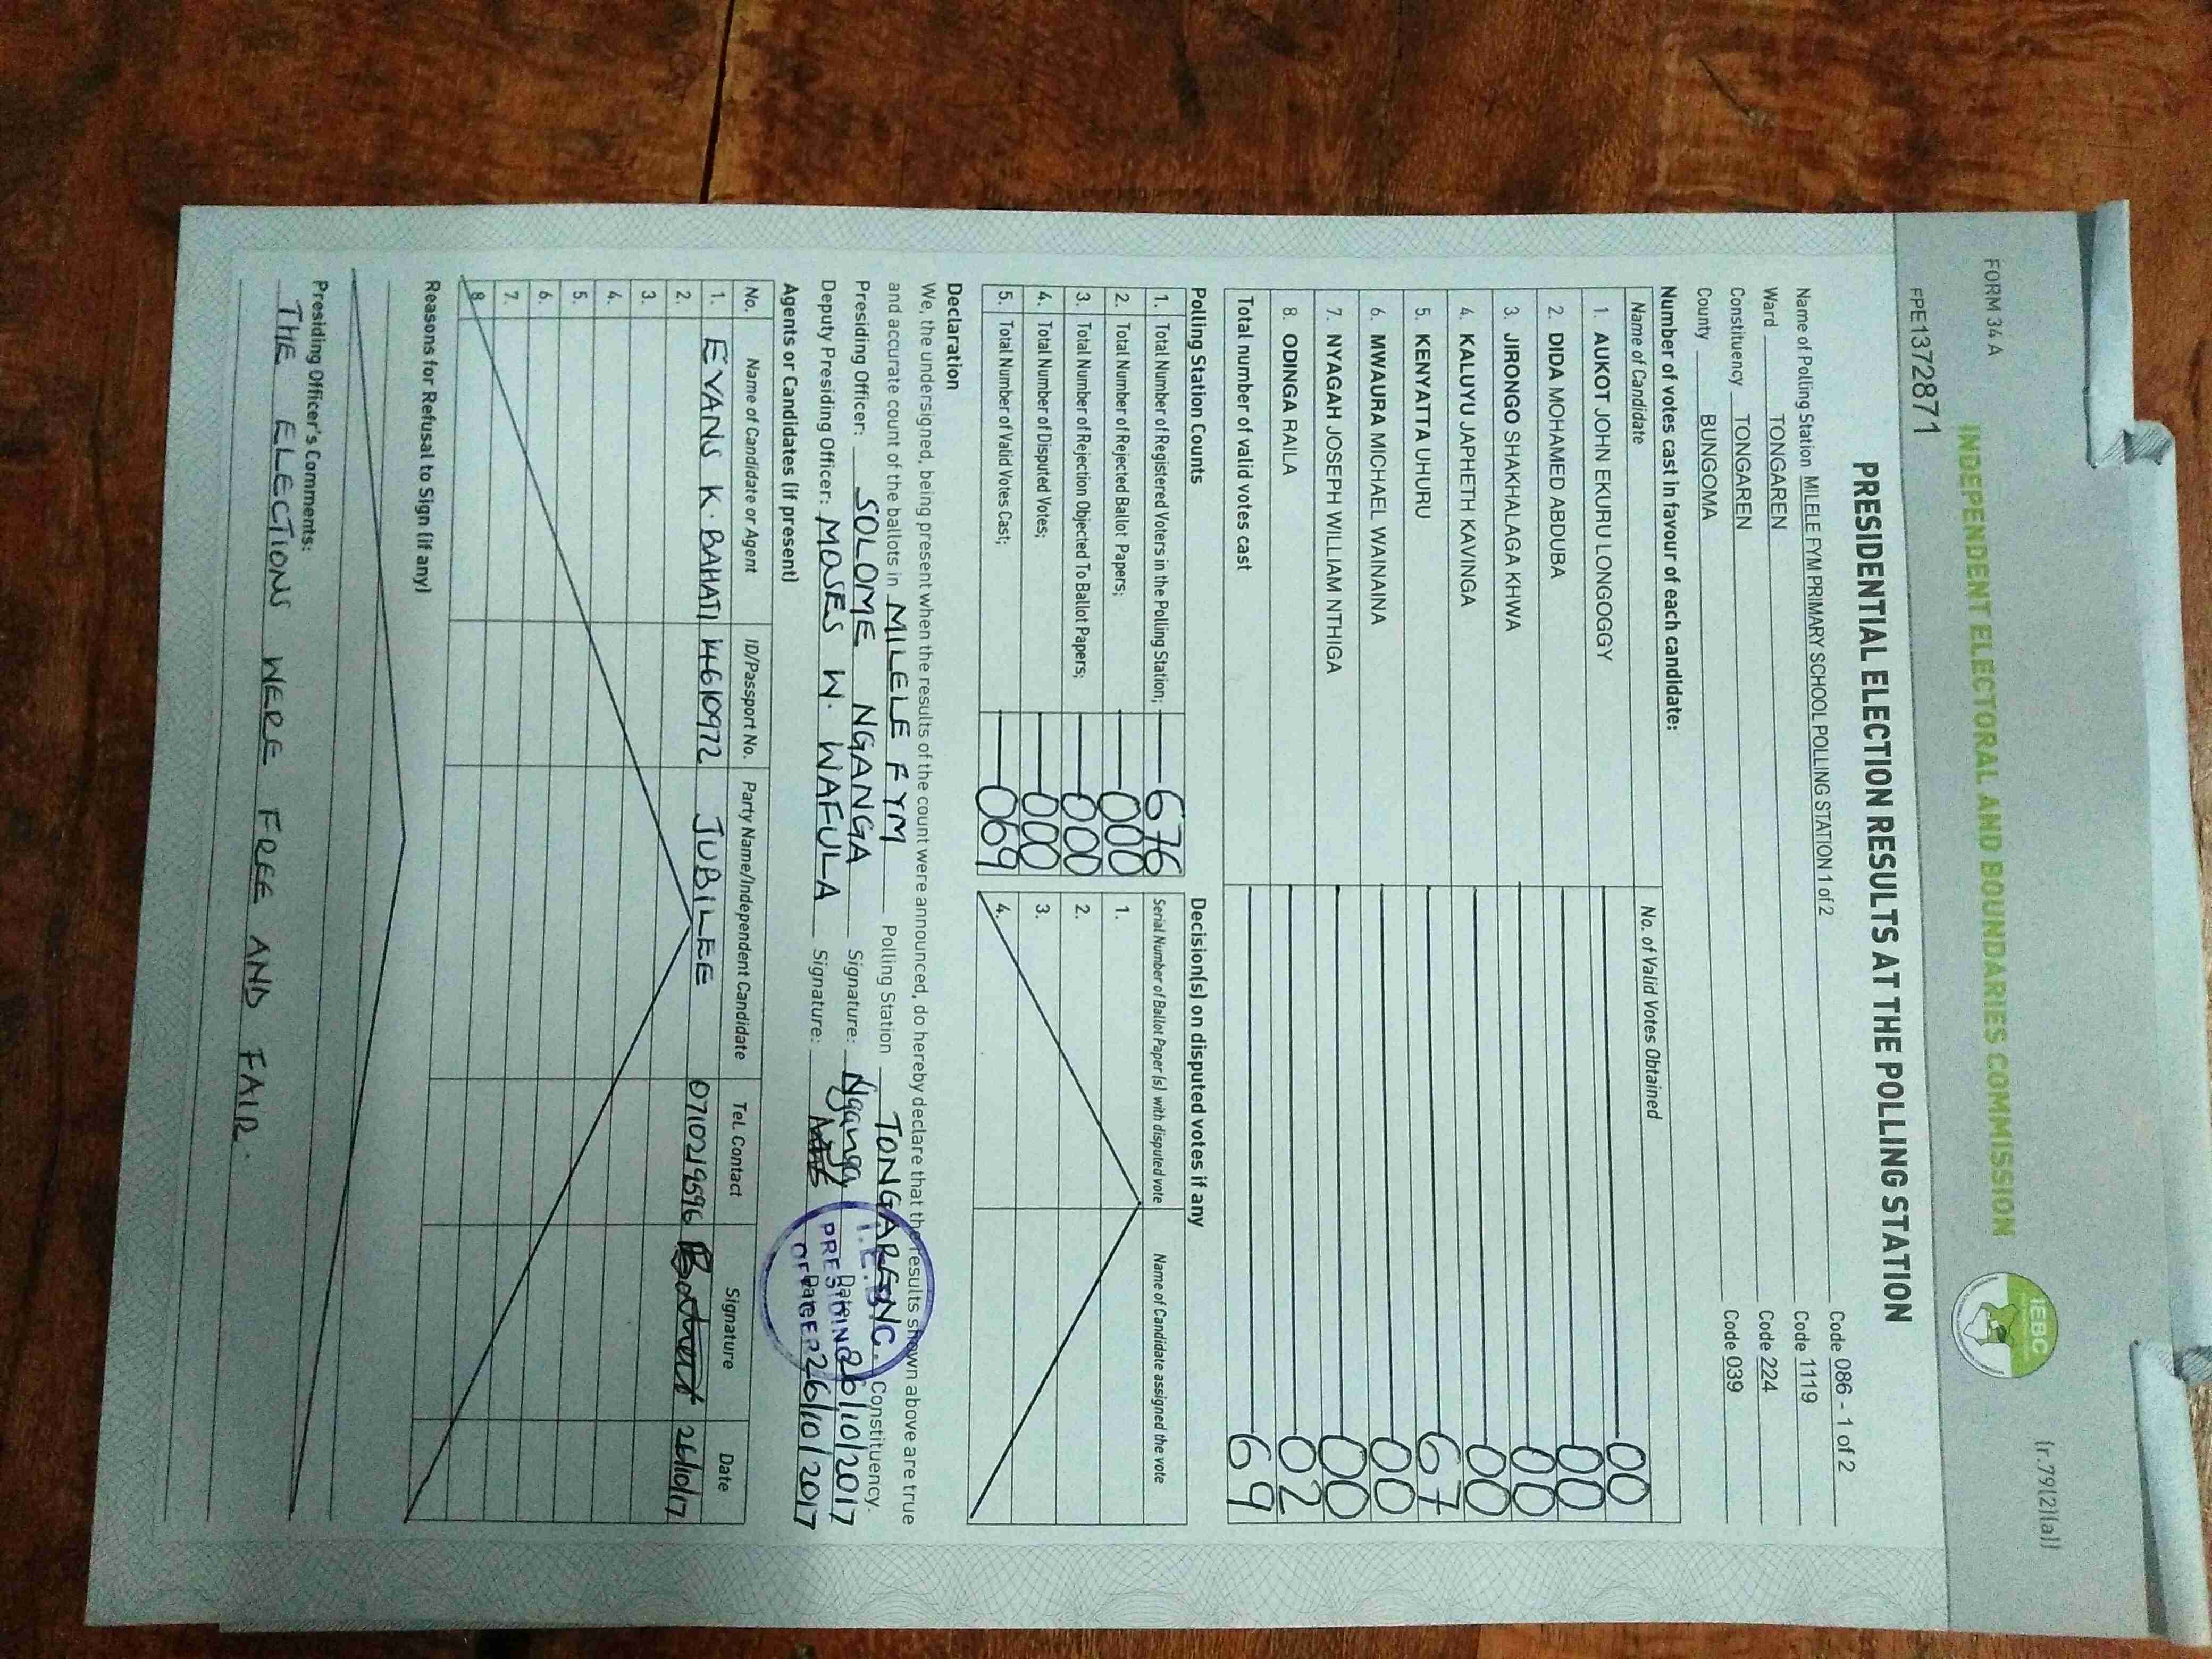 FORM 34 A
(r.79(2)(a))
INDEPENDENT ELECTORAL AND BOUNDARIES COMMISSION
IEBC
FPE1372871
PRESIDENTIAL ELECTION RESULTS AT THE POLLING STATION
Name of Polling Station MILELE FYM PRIMARY SCHOOL POLLING STATION 1 of 2 Code 086 - 1 of 2
Ward TONGAREN Code 1119
Constituency TONGAREN Code 224
County BUNGOMA Code 039
Number of votes cast in favour of each candidate:
Name of Candidate No. of Valid Votes Obtained
1. AUKOT JOHN EKURU LONGOGGY 00
2. DIDA MOHAMED ABDUBA 00
3. JIRONGO SHAKHALAGA KHWA 00
4. KALUYU JAPHETH KAVINGA 00
5. KENYATTA UHURU 67
6. MWAURA MICHAEL WAINAINA 00
7. NYAGAH JOSEPH WILLIAM NTHIGA 00
8. ODINGA RAILA 02
Total number of valid votes cast 69
Polling Station Counts
1. Total Number of Registered Voters in the Polling Station; 676
2. Total Number of Rejected Ballot Papers; 000
3. Total Number of Rejection Objected To Ballot Papers; 000
4. Total Number of Disputed Votes; 000
5. Total Number of Valid Votes Cast; 069
Decision(s) on disputed votes if any
Serial Number of Ballot Paper (s) with disputed vote Name of Candidate assigned the vote
1.
2.
3.
4.
Declaration
We, the undersigned, being present when the results of the count were announced, do hereby declare that the results shown above are true
and accurate count of the ballots in MILELE FYM Polling Station TONGAREN Constituency.
Presiding Officer: SOLOME NGANGA Signature: Nganga Date 26/10/2017
Deputy Presiding Officer: MOSES W. WAFULA Signature: Date 26/10/2017
I.E.B.C.
PRESIDING
OFFICER
Agents or Candidates (if present)
No. Name of Candidate or Agent ID/Passport No. Party Name/Independent Candidate Tel. Contact Signature Date
1. EVANS K. BAHATI 14610972 JUBILEE 0710219596 26/10/17
2.
3.
4.
5.
6.
7.
8.
Reasons for Refusal to Sign (if any)
Presiding Officer's Comments:
THE ELECTIONS WERE FREE AND FAIR.